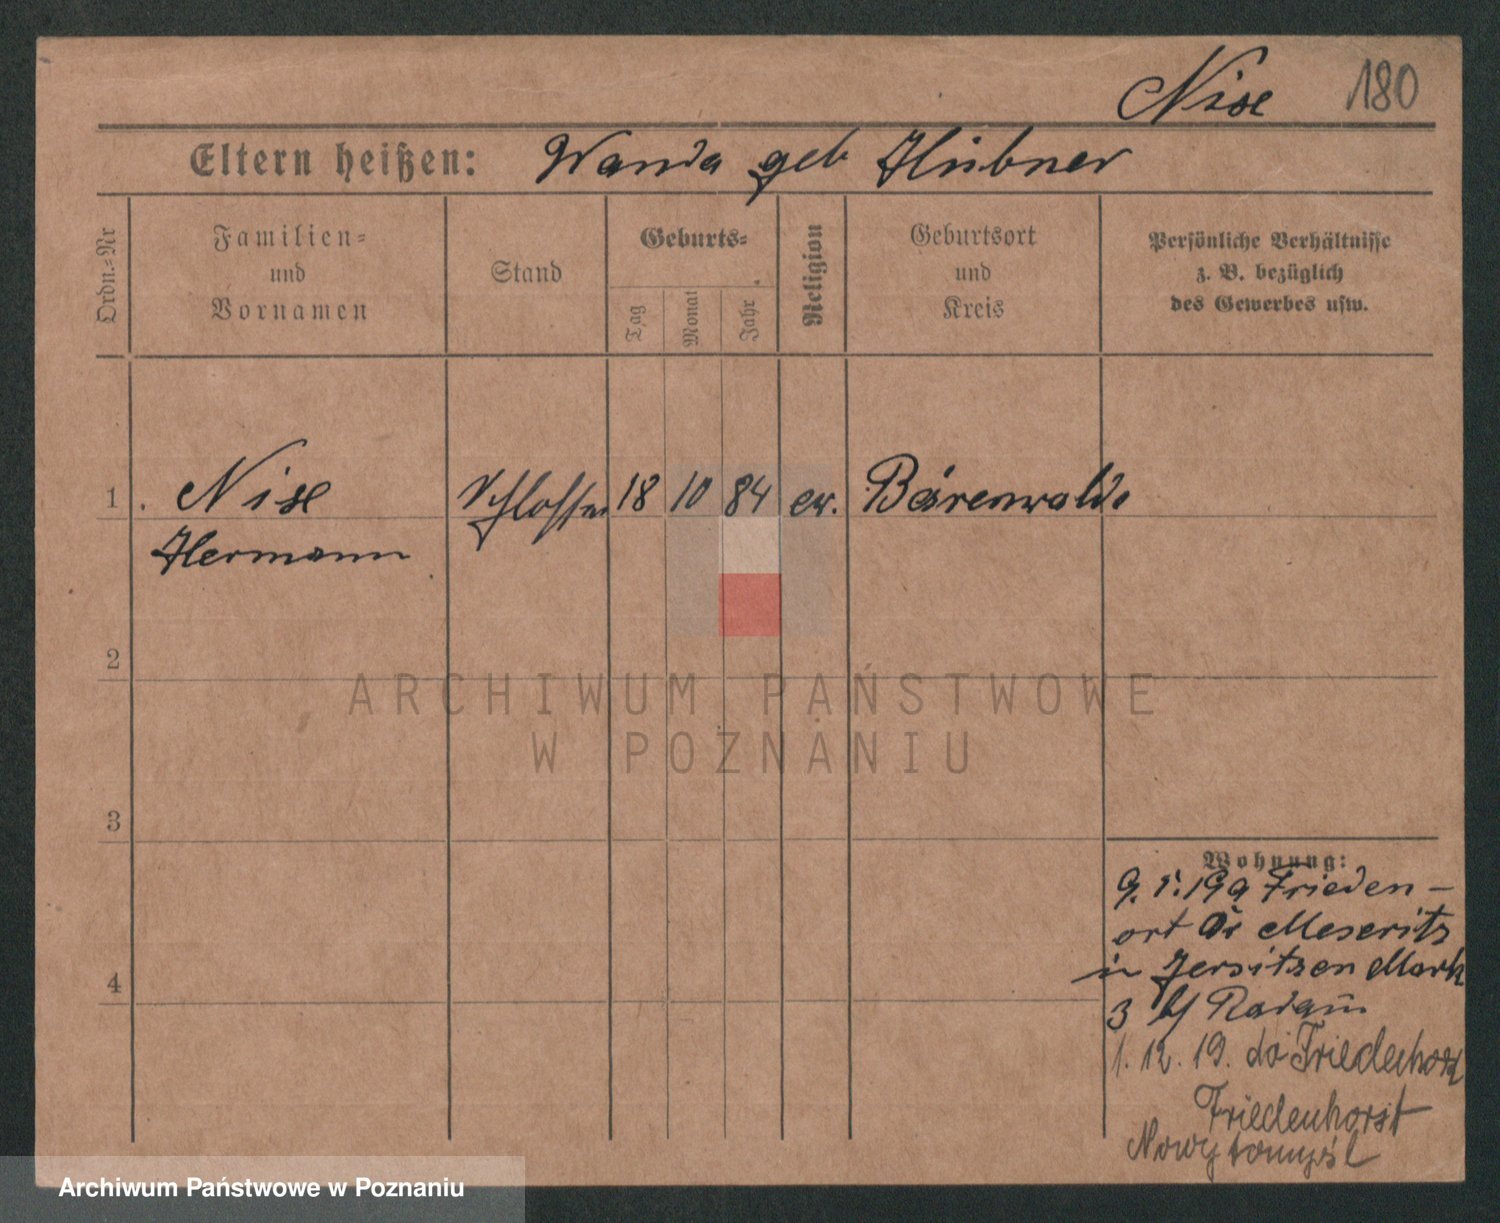 Nise 180
Eltern heißen: Wanda geb Hübner
Ordn.-Nr
Familien-
und
Vornamen
Stand
Geburts-
Tag
Monat
Jahr
Religion
Geburtsort
und
Kreis
Persönliche Verhältnisse
z. B. bezüglich
des Gewerbes usw.
1 Nise Schlosser 18 10 84 ev. Bärenwalde
Hermann
2
ARCHIWUM PAŃSTWOWE
W POZNANIU
3
Wohnung:
9. 1. 19 a Frieden-
ort Meseritz
in Jersitzen Mark
3 b/ Radam
1. 12. 19. Friedenhorst
4
Friedenhorst
Nowytomyśl
Archiwum Państwowe w Poznaniu